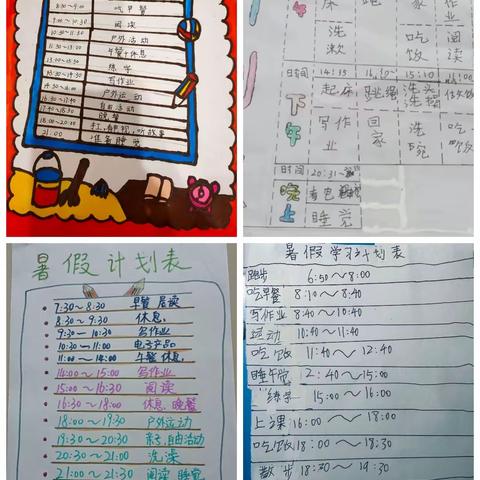 吃早餐
9:00~10:30 阅读
10:30~11:30 户外活动
午餐+休息
练字
写作业
户外运动
自由活动
晚餐
18:00~20:00 打球,电视,听故事
21:00 准备睡觉
床 跑 家 作业
洗漱 吃饭 阅读
时间 14:35 15:10
下午
起床 跳绳 洗头洗澡
写作业 回家 洗碗 吃饭
时间 20:31
晚上 睡觉
暑假计划表
7:30~8:30 早餐 晨读
8:30~9:30 休息
9:30~10:30 写作业
10:30~11:00 电子产品
11:00~14:00 午餐 休息
14:00~15:00 写作业
15:00~16:30 阅读
16:30~18:00 休息 晚餐
18:00~19:30 户外运动
19:30~20:30 亲子,自由活动
20:30~21:00 洗澡
21:00~21:30 阅读 睡觉
暑假学习计划表
跑步 6:50~8:00
吃早餐 8:10~8:40
写作业 8:40~10:40
运动 10:40~11:40
吃饭 11:40~12:40
睡午觉 2:40~15:00
练字 15:00~16:00
上课 16:00~18:00
吃饭 18:00~18:30
散步 18:30~19:30